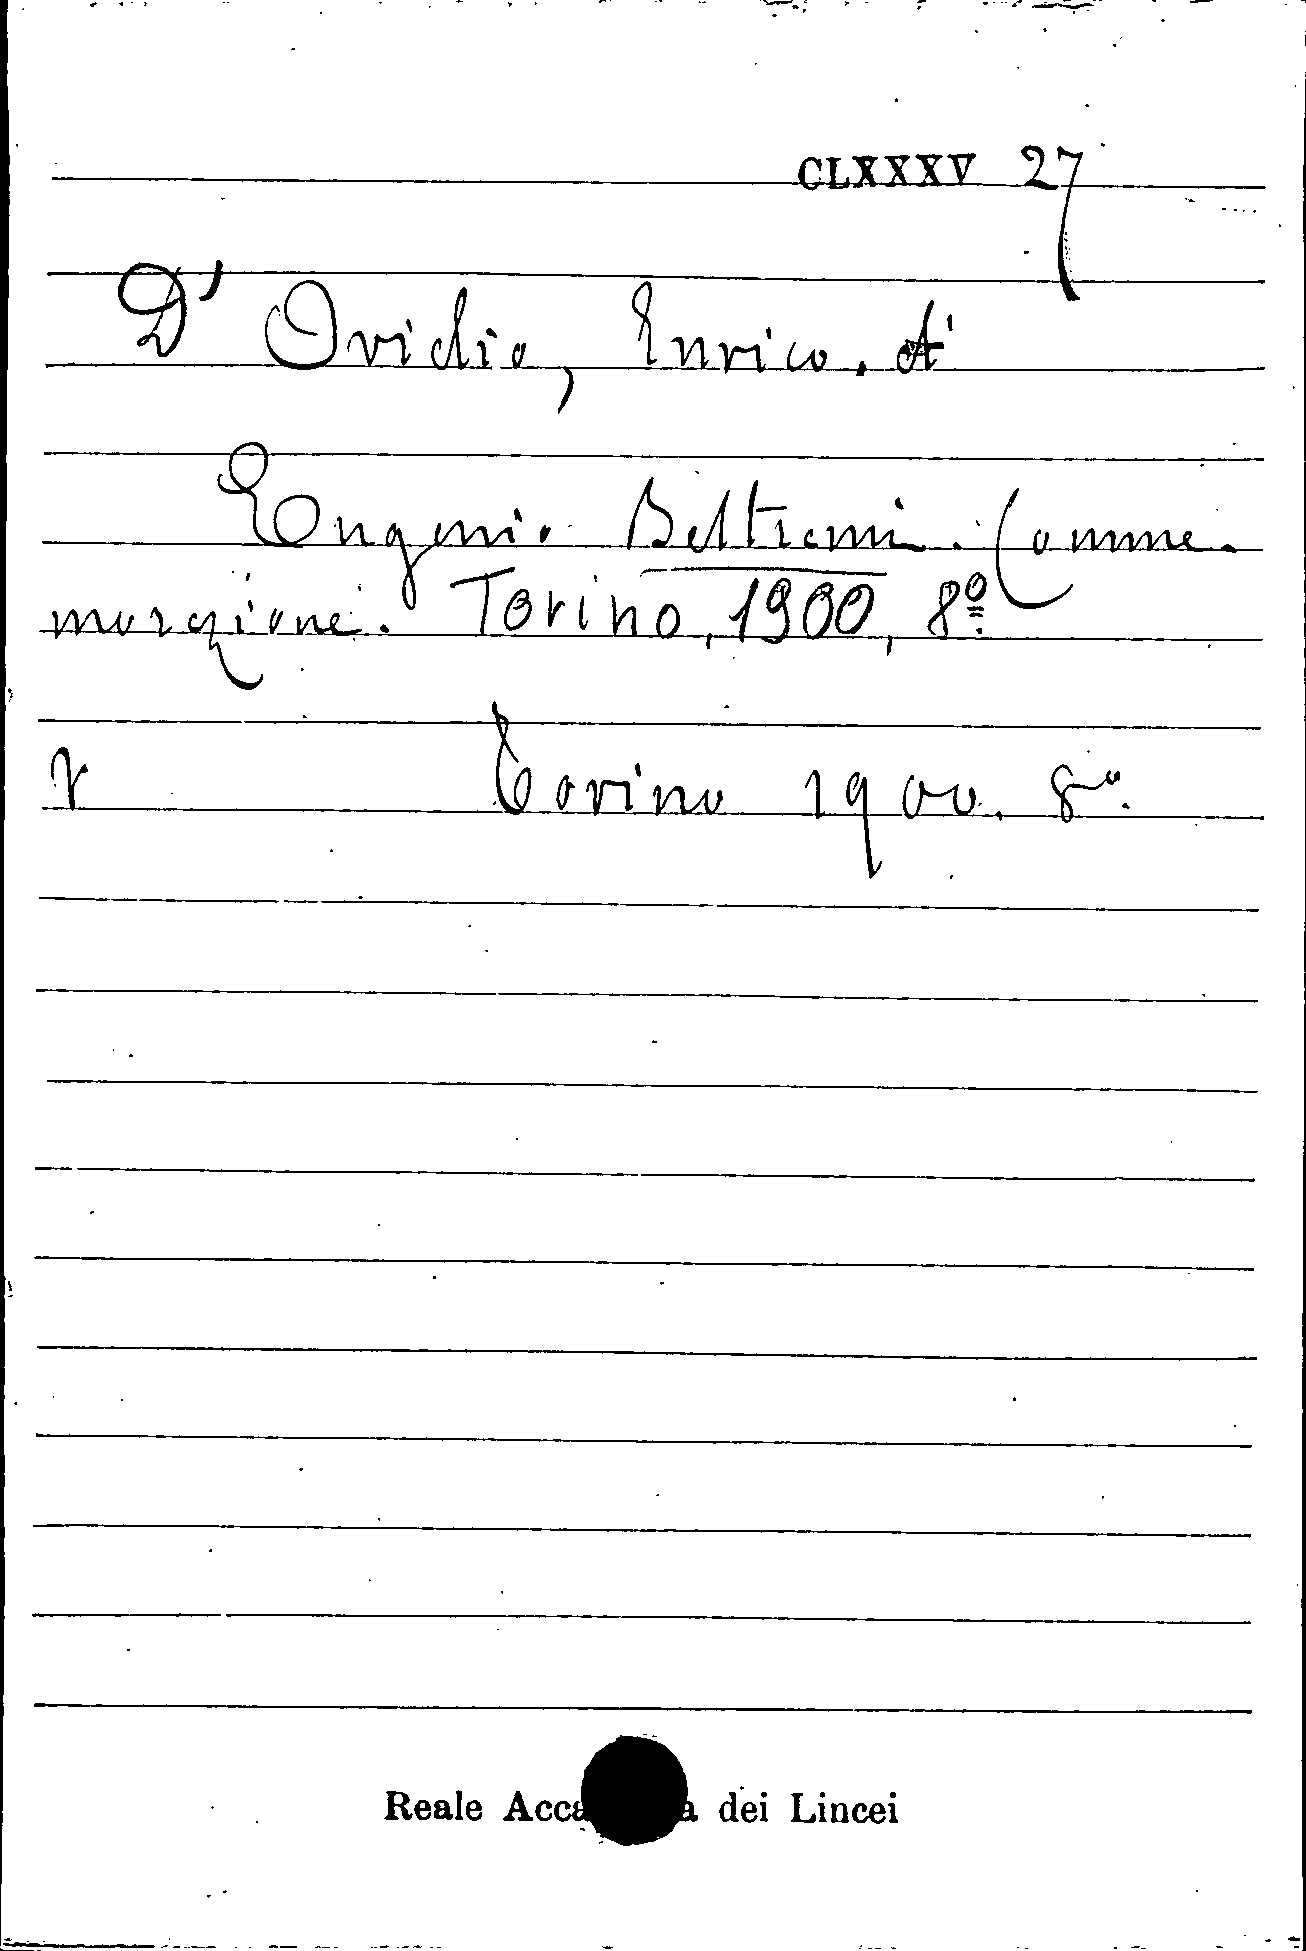 CLXXXV 27
D' Ovidio, Enrico.
Eugenio Beltrami. Comme-
morazione. Torino, 1900, 8º.
Torino 1900. 8º.
Reale Acca a dei Lincei